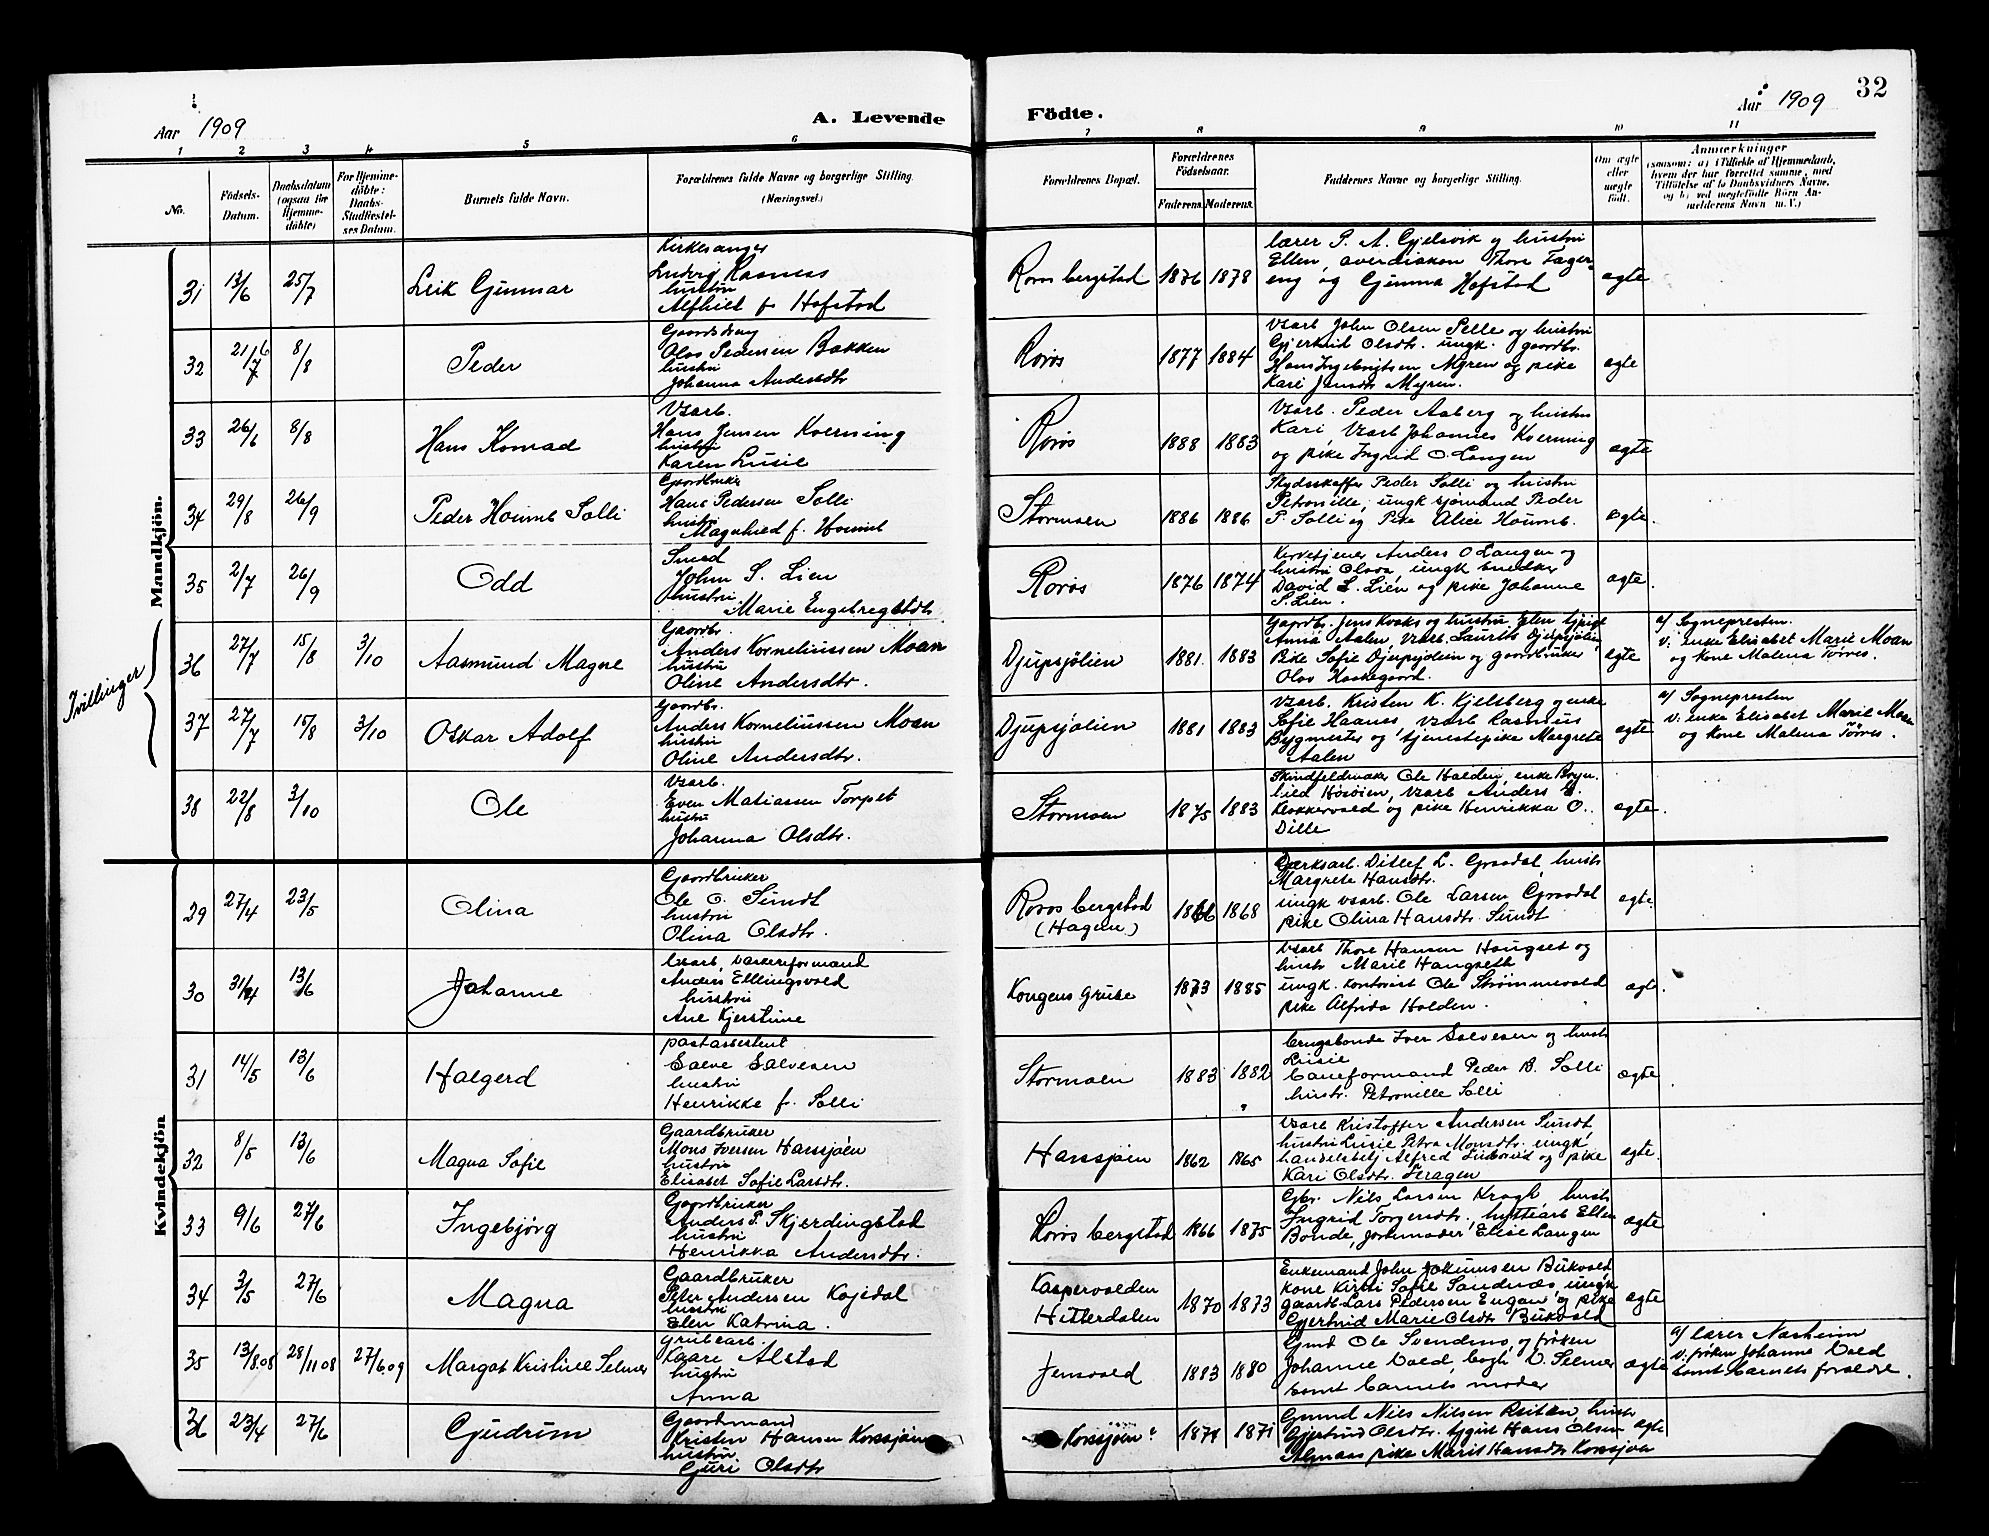 Aar 1909
A. Levende
Födte.
Aar 1909
32
1 2 3 4 5 6 7 8 9 10 11
No.
Födsels-
Datum.
Daabsdatum
(ogsaa for
Hjemme-
döbte)
For Hjemme-
döbte:
Daabs-
Stadfæstel-
ses Datum.
Barnets fulde Navn.
Forældrenes fulde Navne og borgerlige Stilling.
(Næringsvei.)
Forældrenes Bopæl.
Forældrenes
Födselsaar.
Faderens. Moderens.
Faddernes Navne og borgerlige Stilling.
Om ægte
eller
uægte
födt.
Anmærkninger
(saasom: a) i Tilfælde af Hjemmedaab,
hvem der har forrettet samme, med
Tilföielse af to Daabsvidners Navne,
og b) ved uægtefödte Börn An-
melderens Navn m. V.)
Mandkjön.
31 13/6 25/7
Leik Gunnar
Kirkesanger
Ludvig Rasness
hustru
Alfhild f. Hofstad
Røros bergstad 1876 1878
lærer P. A. Gjelsvik og hustru
Ellen, overdiakon Thore Fager-
eng og Gunma Hofstad
ægte
32 21/6 8/8
Peder
Gaardsdreng
Olav Pedersen Bakken
hustru
Johanna Andersdtr
Røros 1877 1884
Vsarb John Olsen Pelle og hustru
Gjertrud Olsdtr. ungk. gaardbr.
Hans Ingebrigtsen Myren og pike
Kari Jensdtr Myren.
ægte
33 26/6 8/8
Hans Konrad
Vsarb.
Hans Jensen Kverning
hustru
Karen Lusie
Røros 1888 1883
Vsarb. Peder Aaberg og hustru
Kari, Vsarb Johannes Kverning
og pike Ingrid O. Langen
ægte
34 29/8 26/9
Peder Houmb Solli
Gaardbruker
Hans Pedersen Solli
hustru
Magnhild f. Houmb
Stormoen 1886 1886
Skydsskaffer Peder Solli og hustru
Petronille, ungk sjömand Peder
P. Solli og Pike Alice Houmb.
ægte.
35 2/7 26/9
Odd
Smed
John S. Lien
hustru
Marie Engebregtsdtr
Røros 1876 1874
Anders O Langen og
hustru Olava ungk snedker
David L. Lien og pike Johanne
S. Lien.
ægte.
Tvillinger
36 27/7 15/8 3/10
Aasmund Magne
Gaardbr.
Anders Korneliussen Moan
hustru
Oline Andersdtr.
Djupsjölien 1881. 1883
Gaardbr. Jens Kroks og hustru Elen
Anna Aalen, Vsarb. Laurits Djupsjölien,
Pike Sofie Djupsjölien og gaardbruker
Olav
ægte
a/ Sognepresten.
v. enke Elisabet Marie Moan
og kone Malena Törres.
37 27/7 15/8 3/10
Oskar Adolf
Gaardbr.
Anders Korneliussen Moan
hustru
Oline Andersdtr.
Djupsjölien 1881 1883
Vsarb. Kristen K. Kjelsberg og enke
Sofie Haanes, Vsarb Rasmus
Bygmester og tjenestepike Margrete
Aalen
ægte
a/ Sognepresten
v. enke Elisabet Marie Moan
og kone Malena Törres.
38 22/8 3/10
Ole
Vsarb.
Even Matiassen Torpet
hustru
Johanna Olsdtr.
Stormoen 1875 1883
Skindfeldmaker Ole Holden, enke Bryn-
hild Høsøien, Vsarb Anders E.
Klokkervold og pike Henrikka O.
Dille
ægte.
Kvindekjön
29 27/4 23/5
Olina
Gaardbruker
Ole O. Sundt
hustru
Olina Olsdtr.
Røros bergstad
(Hagen) 1866 1868
Værksarb. Ditlef L. Graadal, hustr
Margrete Hansdtr.
ungk vsarb. Ole Larsen Graadal
pike Olina Hansdtr. Sundt
ægte
30 31/4 13/6
Johanne
Vsarb, vaskereformand
Anders Ellingsvold
hustru
Ane Kjerstine
Kongens Grube 1873 1885
Vsarb Thore Hansen Haugset og
hustr Marie Haugseth
ungk. kontorist Ole Strømmevold
pike Alfrida Holden.
ægt.
31 14/5 13/6
Halgerd
postassistent
Salve Salvesen
hustru
Henrikke f. Solli
Stormoen 1883 1882
brugsbonde Iver Salvesen og hustr
Lusie
baneformand Peder B. Solli
hustr. Petronille Solli
ægte
32 8/5 13/6
Magna Sofie
Gaardbruker
Mons Iversen Hansjöen
hustru
Elisabet Sofie Larsdtr.
Hansjøen 1862 1865
Vsarb Kristoffer Andersen Sundt
hustru Lusie Petra Monsdtr. ungk
handelsbetj Alfred og pike
Kari Olsdtr. Feragen
ægte.
33 9/6 27/6
Ingebjörg
Gaardbruker
Anders P. Skjerdingstad
hustru
Henrikka Andersdtr.
Røros bergstad 1866 1875
Gbr. Nils Larsen Kragh, hustr
Ingrid Torgersdtr. hyttearb Ellen
Bonde, Jordmoder Elise Langen
ægte
34 3/5 27/6
Magna
Gaardbruker
Peter Andersen Kojedal
hustru
Elen Katrina.
Kaspervolden
Hitterdalen 1870 1873
Enkemand John Jokumsen Bukvold
kone Kirsti Sofie Sandnæs, ungk
gaardbr Lars Pedersen Engan, og pike
Gjertrud Marie Olsdtr Bukvold
ægte
35 13/8.08 28/11 08 27/6.09
Margot Kristine Selmer
Grubearb.
Kaare Alstad
hustru
Anna
Jensvold 1883 1880
Gmd Ole Svendsen, og fröken
Johanne Vold, bogh. O. Selmer
samt barnets moder
ægte
a/ lærer Nasheim
v. fröken Johanne Vold
samt barnets forældre.
36 23/4 27/6
Gudrun
Gaardmand
Kristen Hansen Korssjöen
hustru
Guri Olsdtr
"Korssjöen" 1871 1871
Gmd Nils Nilsen Reitan, hustr
Gjertrud Olsdtr. Hans Olsen
Almaas pike Marit Hansdtr Korssjøen
ægte